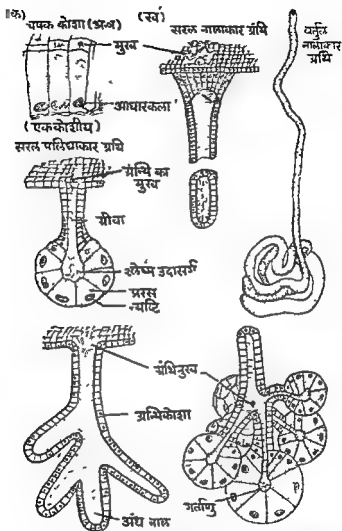 (क)
चषक कोशा (अ.ब)
मुख
आधारकला
(एककोशीय)
(ख)
सरल नालाकार ग्रंथि
वर्तुल
नालाकार
ग्रंथि
सरल पलिघाकार ग्रंथि
ग्रन्थि का
मुख
ग्रीवा
श्लेष्म उदासर्ग
प्ररस
न्यष्टि
ग्रंथिमुख
ग्रन्थिकोशा
अंध नाल
गर्ताणु